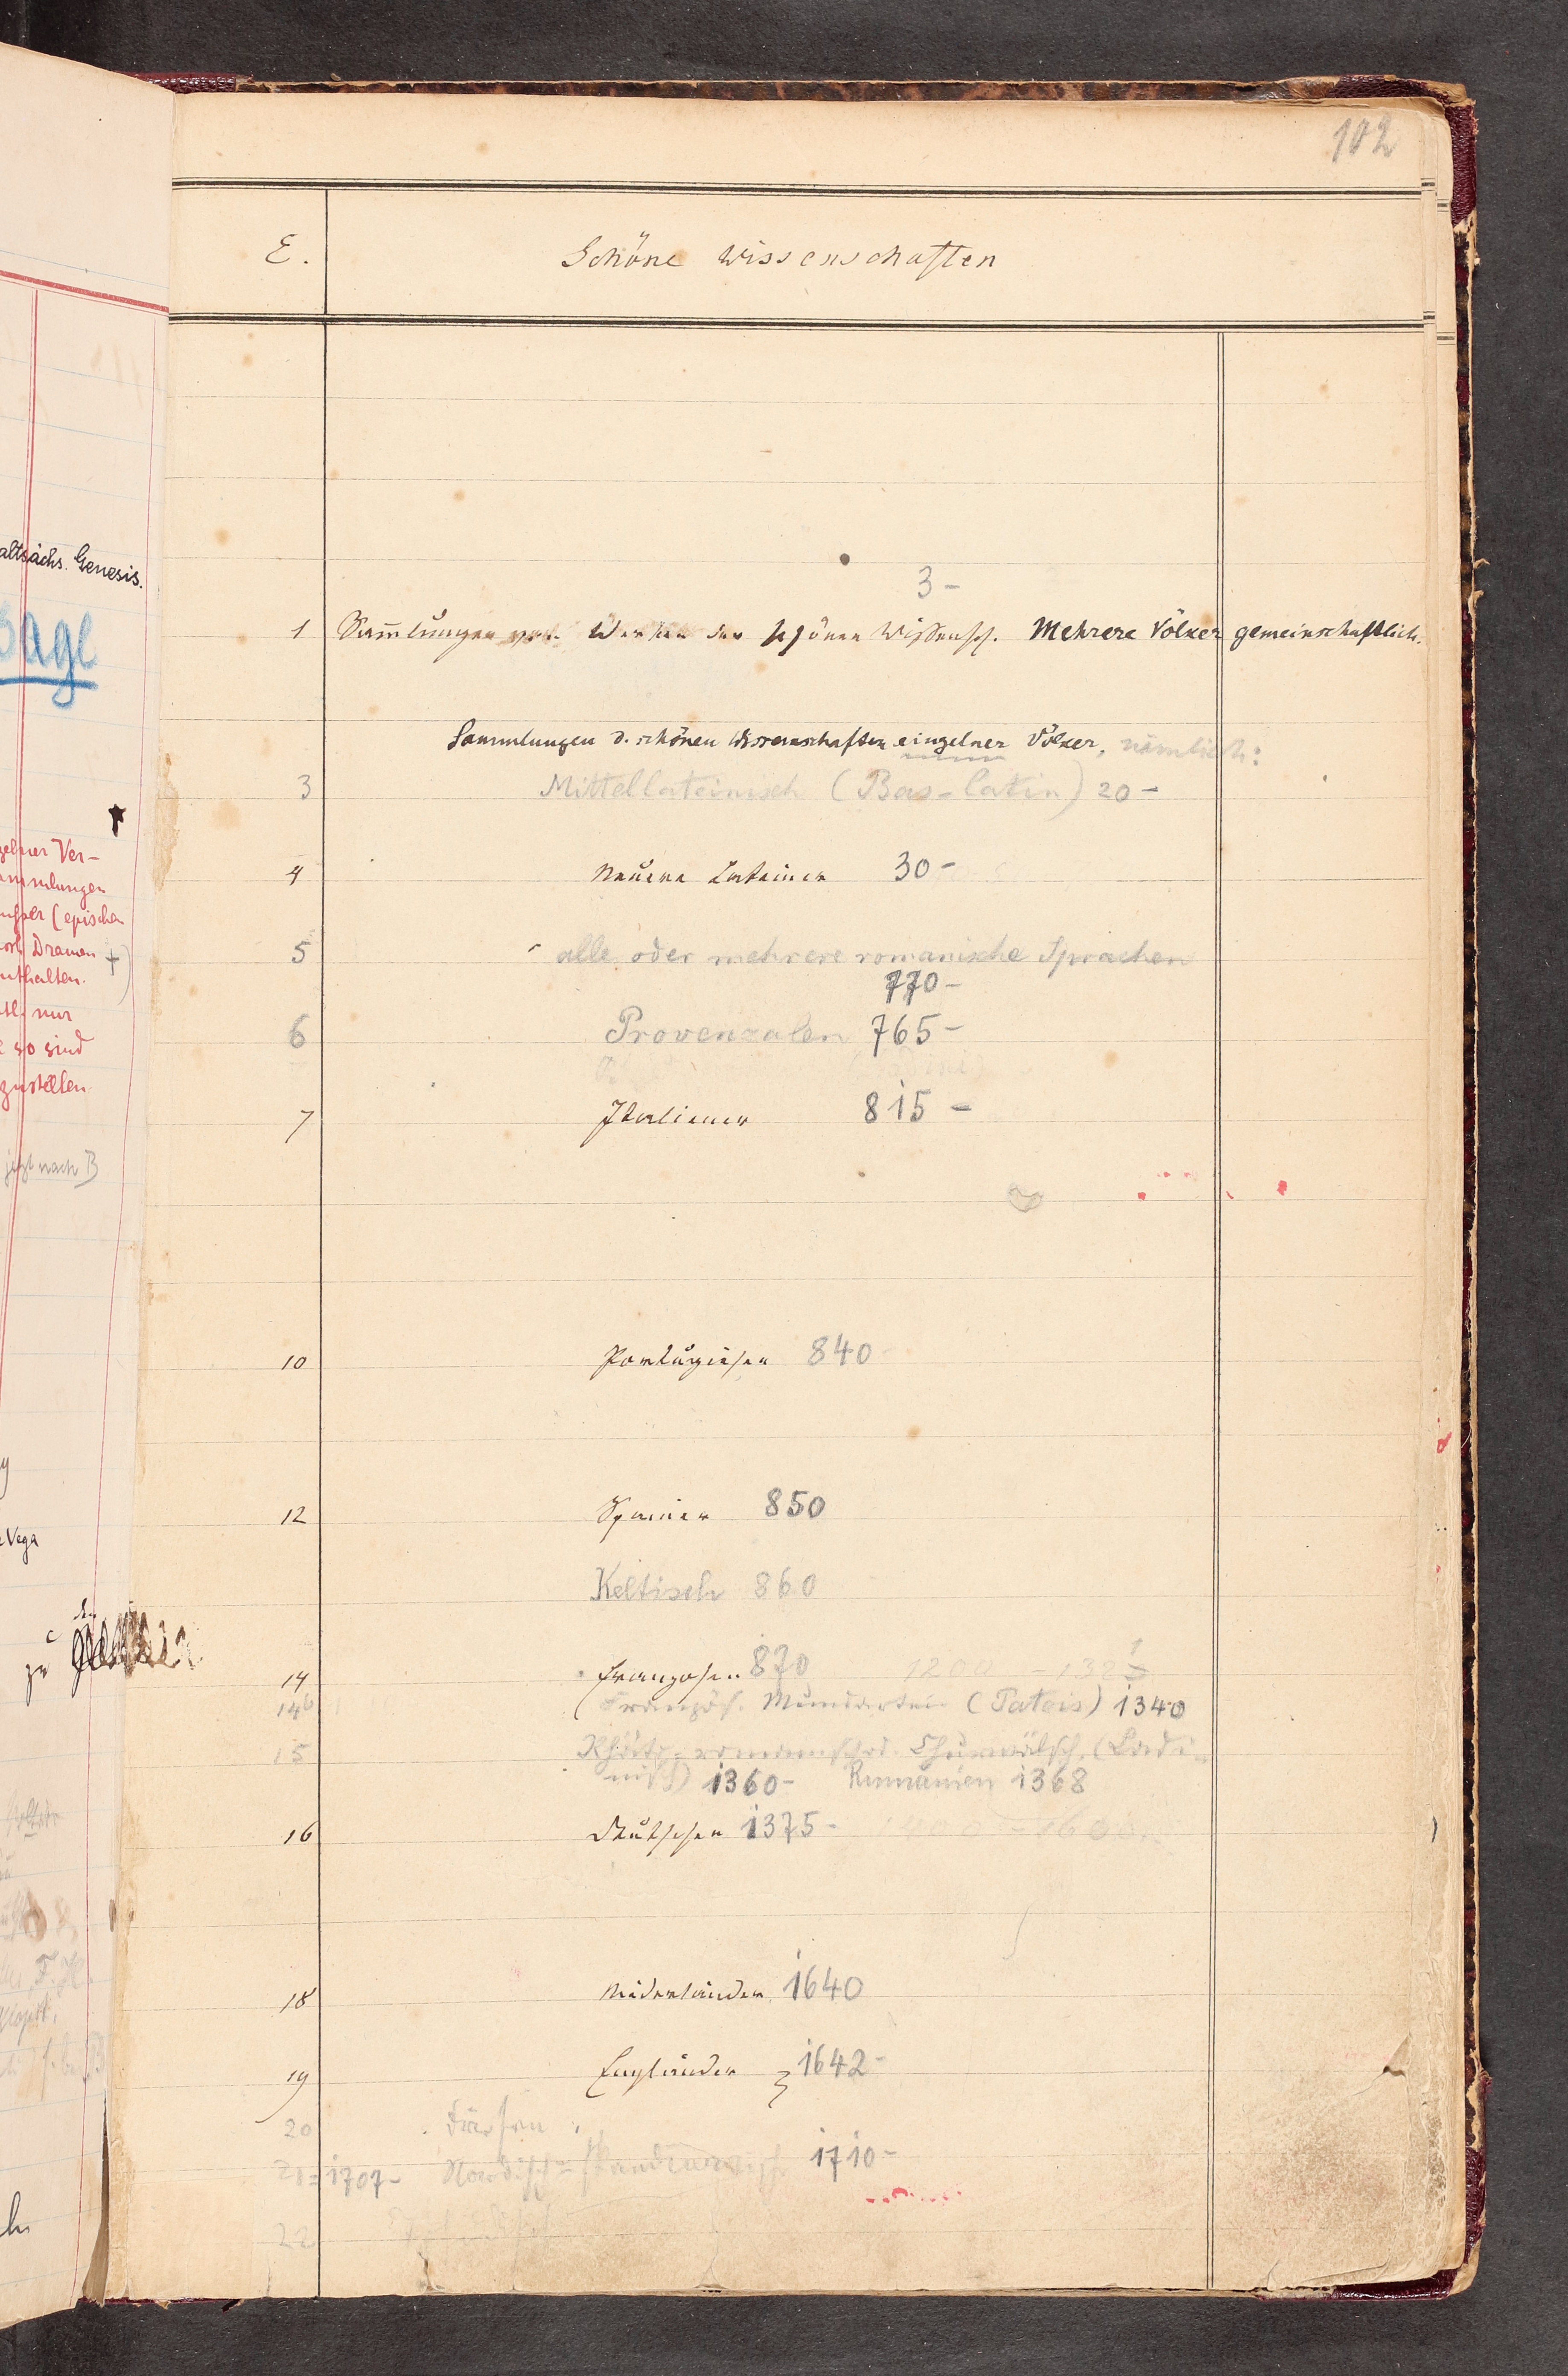 102
E. Schöne Wissenschaften
3-
1 Sammlungen von Werken der schönen Wissensch. Mehrere Völker gemeinschaftlich.
Sammlungen d. schönen Wissenschaften einzelner Völker, nämlich:
3 Mittellateinisch (Bas-latin) 20-
4 Neuere Lateiner 30-
5 alle oder mehrere romanische Sprachen
770-
6 Provenzalen 765-
7 Italiener 815-
10 Portugiesen 840
12 Spanier 850
Keltisch 860
14 Franzosen 870 1200 - 132
14b Französ. Mundarten (Patois) 1340
15 Rhäto-romanisches Churwälsch. (Ladi-
nisch) 1360- Rumänien 1368
16 Deutschen 1375-
18 Niederländer 1640
19 Engländer 1642-
20
21 = 1707- Nordisch-skandinavisch 1710-
22
altsächs. Genesis.
Sage
zelner Ver-
ammlungen
(epischen
Dramen +
nthalten.
nur
so sind
zustellen
jetzt nach B
Vega
zu